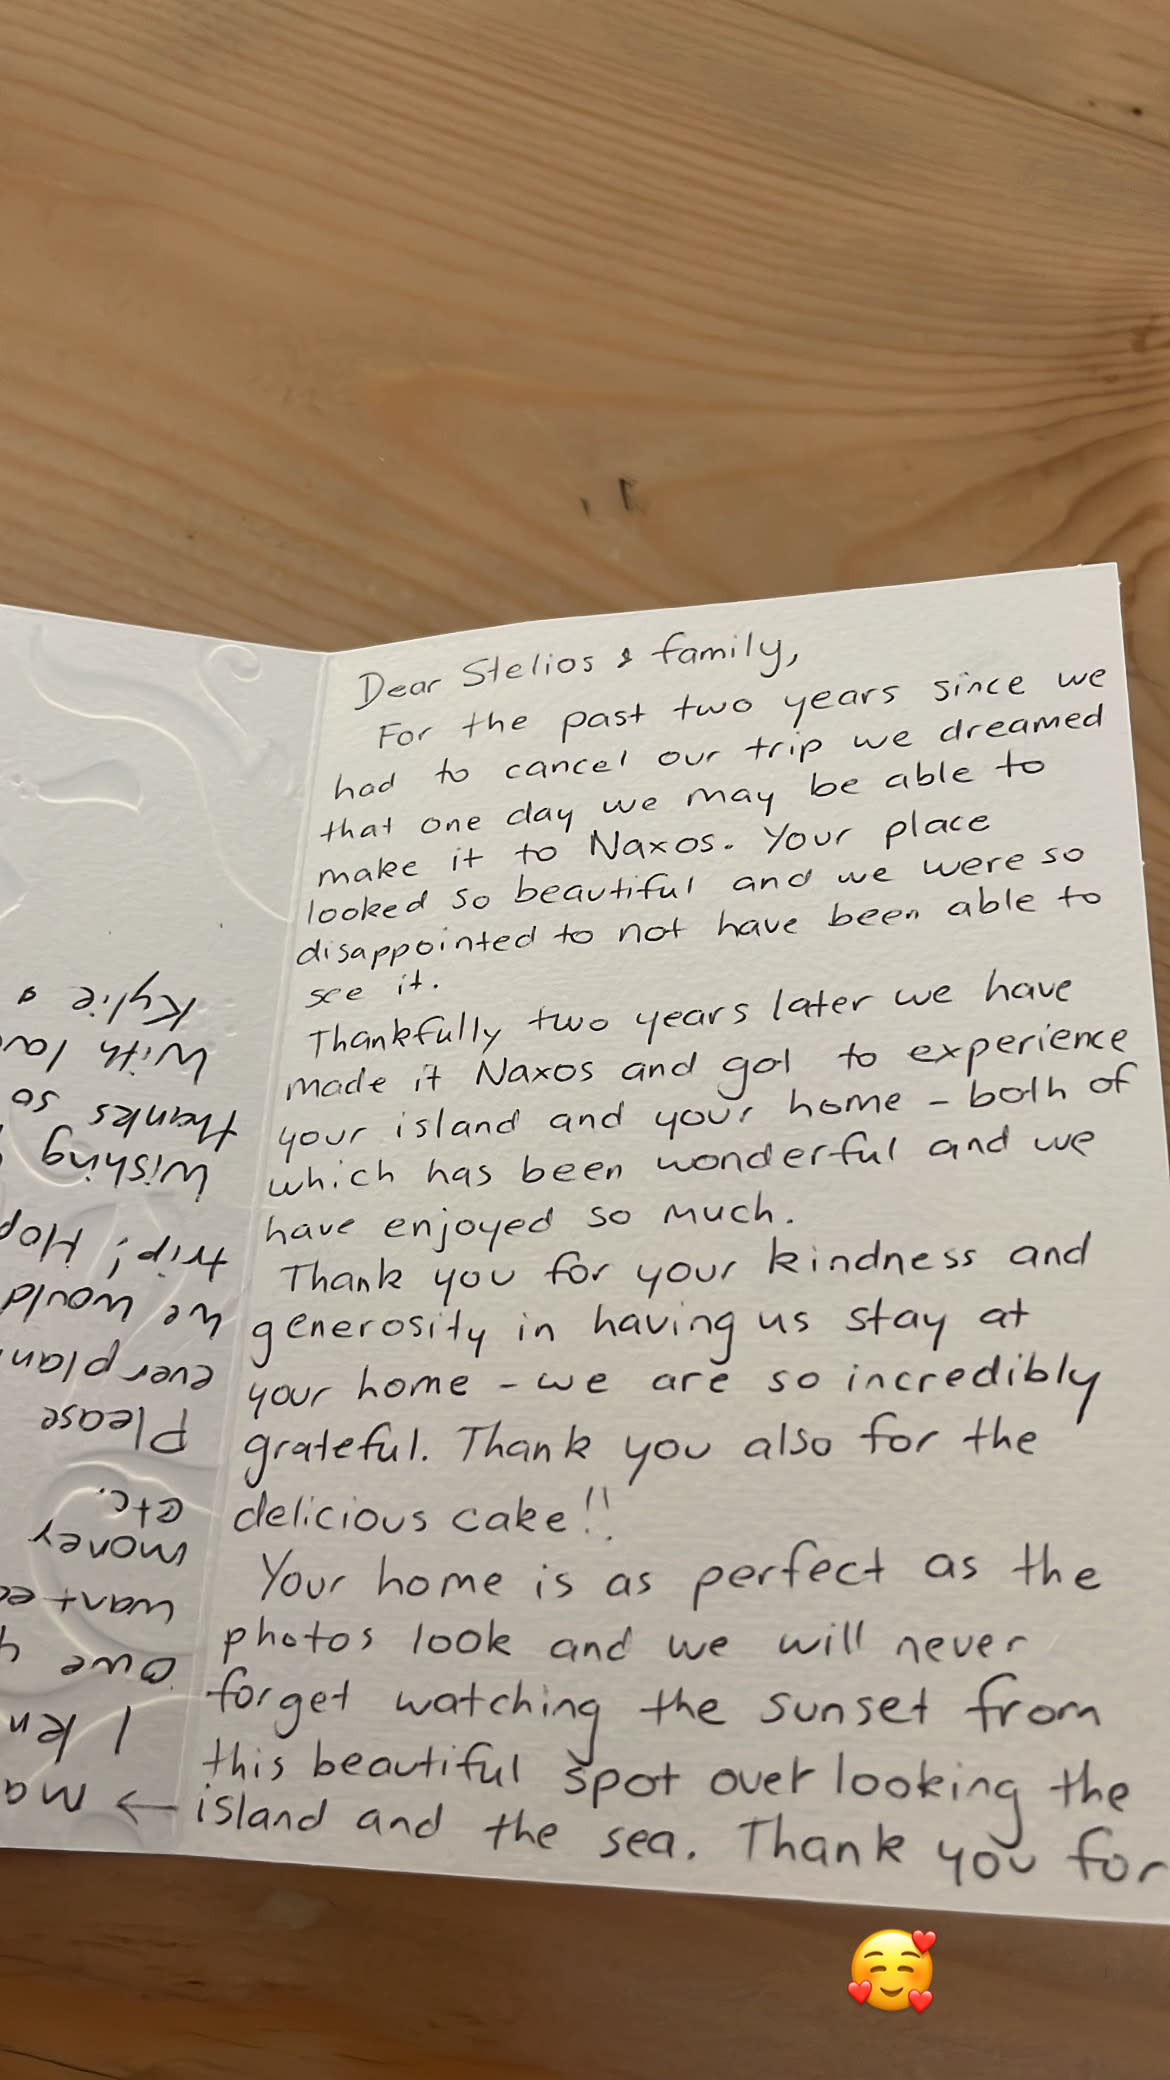 Dear Stelios & family,
For the past two years since we
had to cancel our trip we dreamed
that one day we may be able to
make it to Naxos. Your place
looked so beautiful and we were so
disappointed to not have been able to
see it.
Thankfully two years later we have
made it Naxos and got to experience
your island and your home - both of
which has been wonderful and we
have enjoyed so much.
Thank you for your kindness and
generosity in having us stay at
your home - we are so incredibly
grateful. Thank you also for the
delicious cake!!
Your home is as perfect as the
photos look and we will never
forget watching the sunset from
this beautiful spot over looking the
island and the sea. Thank you for
→ ma
I kn
owe y
want ed
money
etc.
Please
ever plan
we would
trip; Hop
Wishing
thanks so
With lo
Kylie &